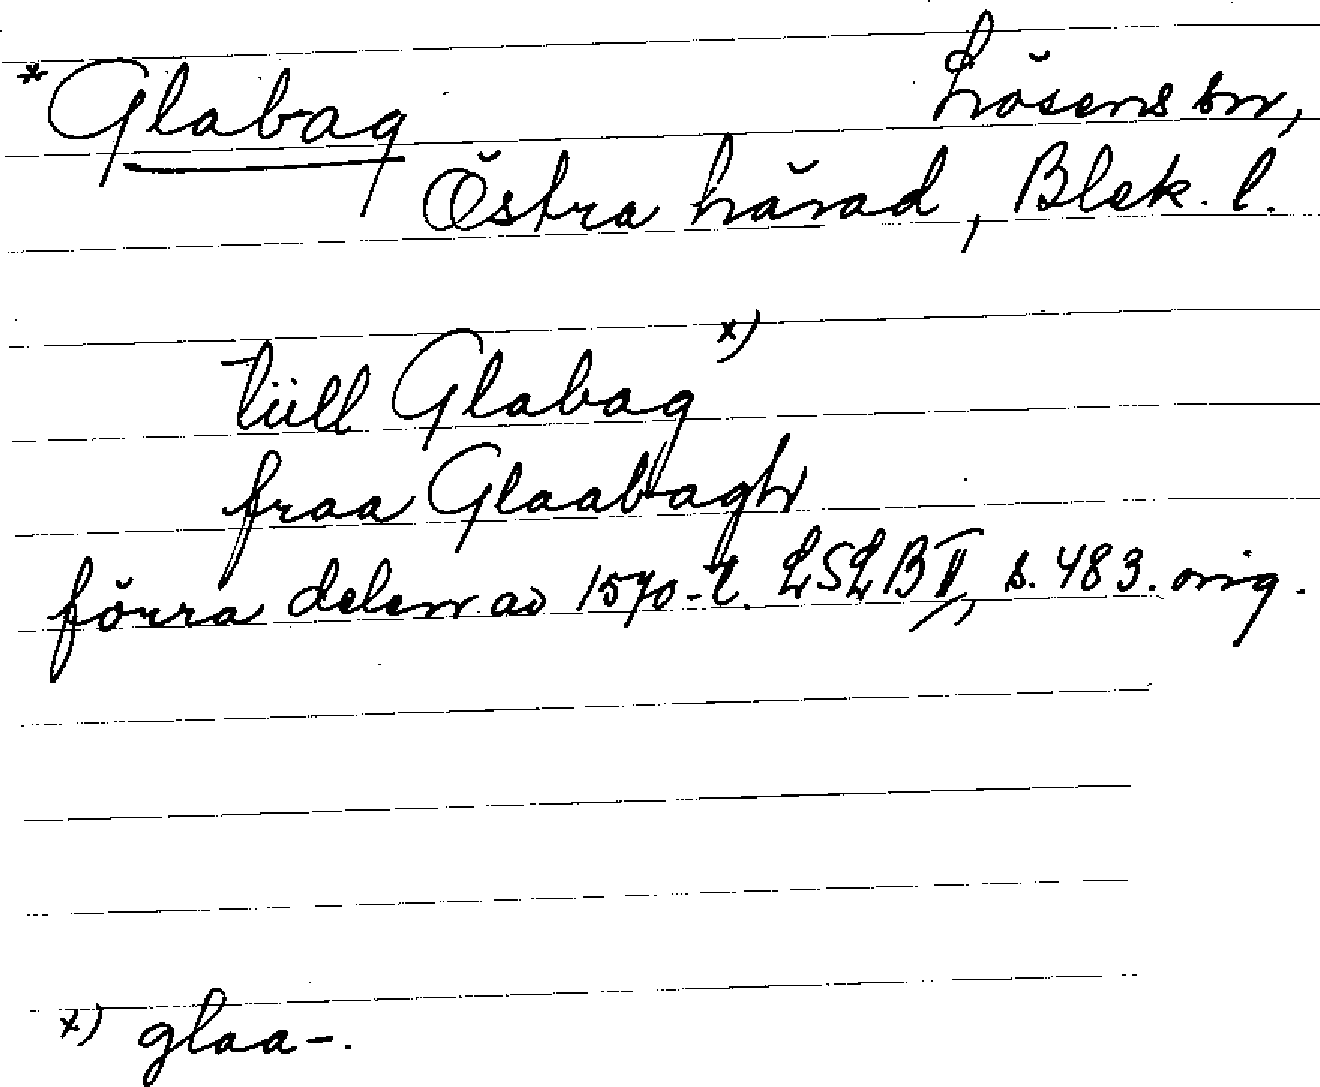 *Glabag Lösens sn,
Östra härad, Blek. l.
tiill Glabag x)
fraa Glaabagh
förra delen av 1570-t. LSLB II, s. 483. orig.
x) glaa-.